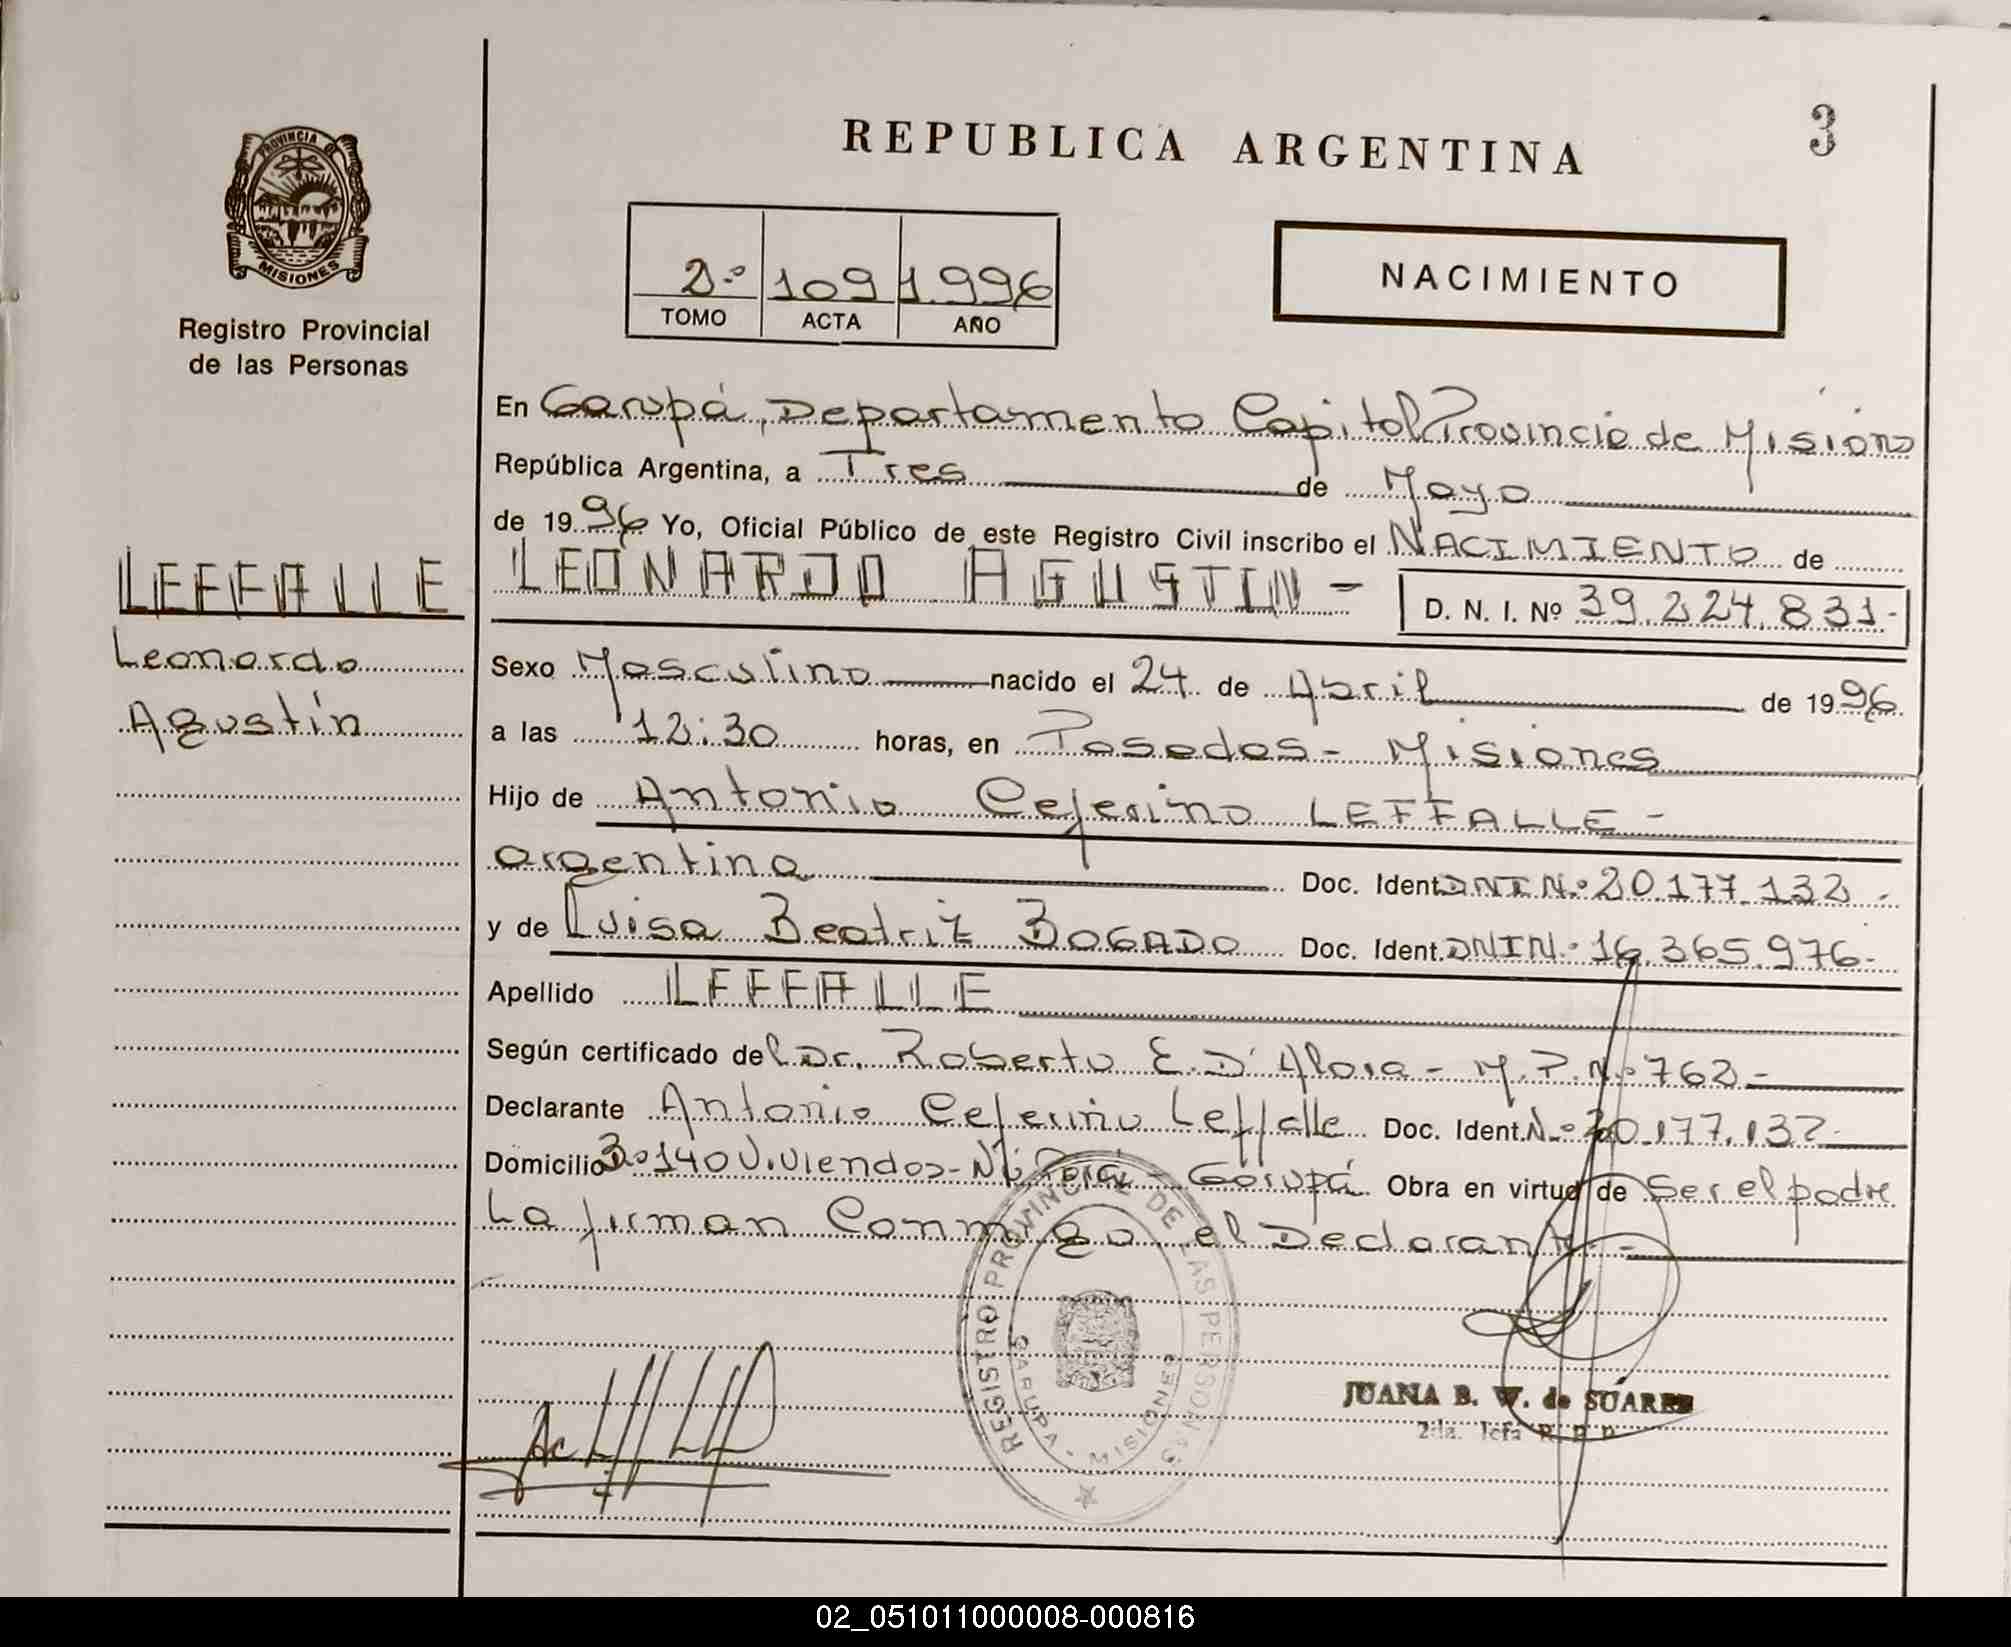 REPUBLICA ARGENTINA
3
PROVINCIA DE
MISIONES
Registro Provincial
de las Personas
2º 109 1.996
TOMO ACTA AÑO
NACIMIENTO
En Garupá, Departamento Capital Provincia de Misiones
República Argentina, a Tres de Mayo
de 1996 Yo, Oficial Público de este Registro Civil inscribo el NACIMIENTO de
LEONARDO AGUSTIN -
D. N. I. Nº 39.224.831-
LEFFALLE
Leonardo
Agustín
Sexo Masculino nacido el 24 de Abril de 1996
a las 12:30 horas, en Posadas - Misiones
Hijo de Antonio Ceferino LEFFALLE -
argentina Doc. Ident. DNI N.º 20.177.132 -
y de Luisa Beatriz BOGADO Doc. Ident. DNI N.º 16.365.976-
Apellido LEFFALLE
Según certificado del Dr. Roberto E. - M.P.N.º 762 -
Declarante Antonio Ceferino Leffalle Doc. Ident. N.º 20.177.132
Domicilio 140 Viviendas - Garupá Obra en virtud de Ser el padre
La firman Conmigo el Declarante. -
REGISTRO PROVINCIAL DE LAS PERSONAS
GARUPA - MISIONES
JUANA B. W. de SUAREZ
2da. Jefa R. P. P.
02_051011000008-000816